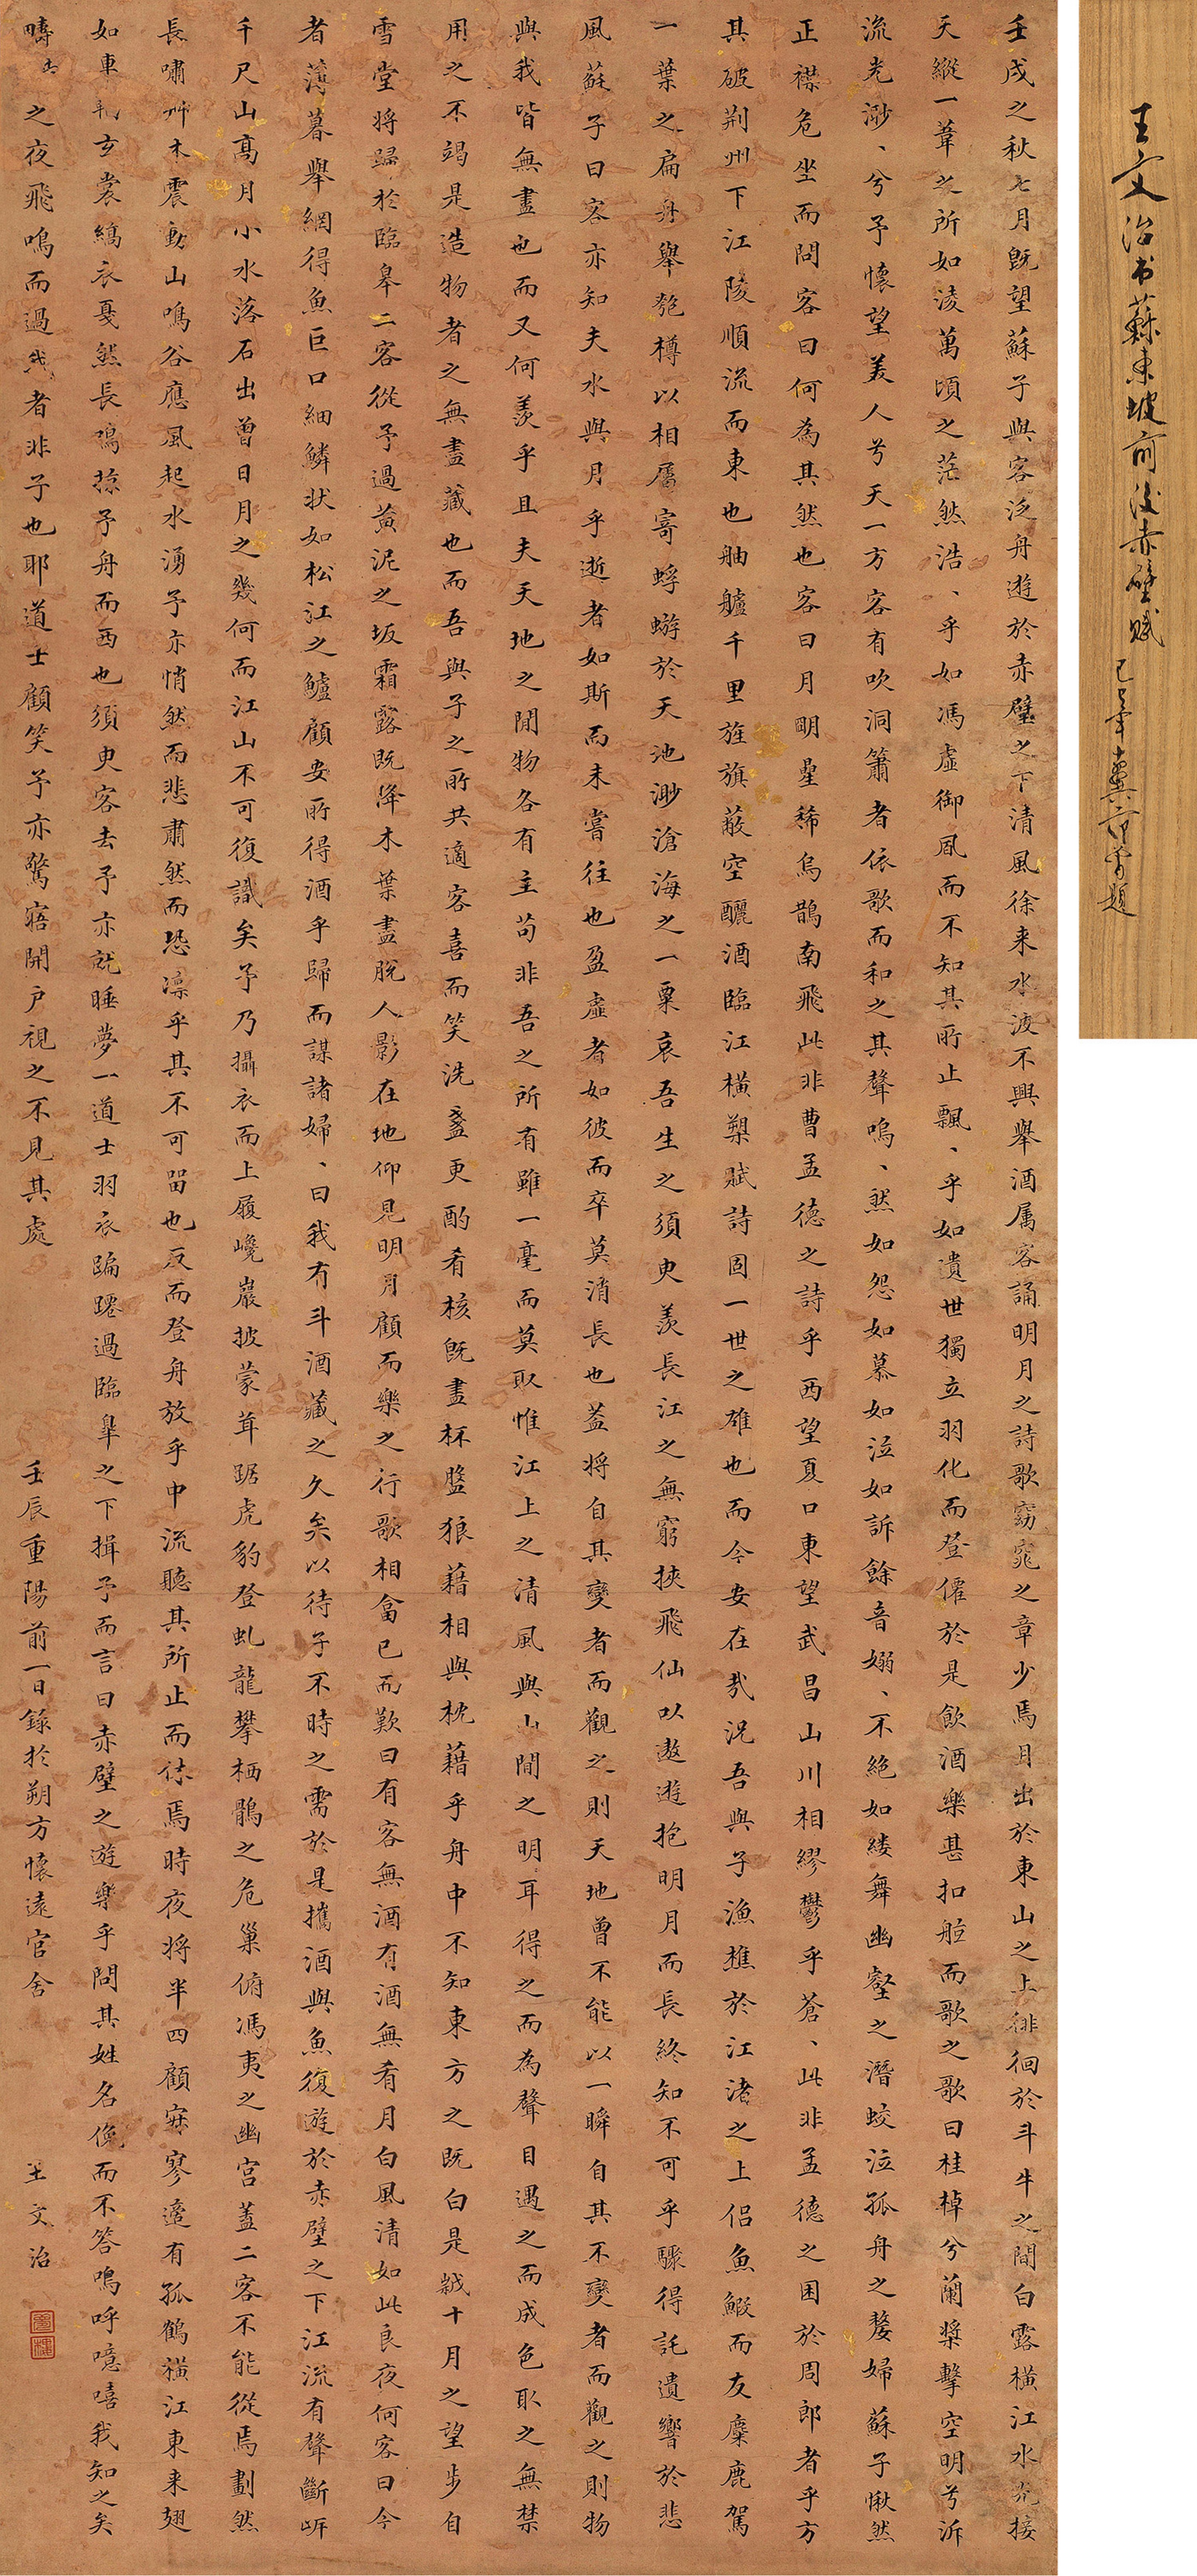 壬戌之秋七月既望蘇子與客泛舟遊於赤壁之下清風徐来水波不興舉酒属客誦明月之詩歌窈窕之章少焉月出於東山之上徘徊於斗牛之間白露橫江水光接
天縱一葦之所如淩萬頃之茫然浩、乎如馮虛御風而不知其所止飄、乎如遺世獨立羽化而登僊於是飲酒樂甚扣舷而歌之歌曰桂棹兮蘭槳擊空明兮泝
流光渺、兮予懷望美人兮天一方客有吹洞簫者依歌而和之其聲嗚、然如怨如慕如泣如訴餘音嫋、不絕如縷舞幽壑之潛蛟泣孤舟之嫠婦蘇子愀然
正襟危坐而問客曰何為其然也客曰月明星稀烏鵲南飛此非曹孟德之詩乎西望夏口東望武昌山川相繆鬱乎蒼、此非孟德之困於周郎者乎方
其破荆州下江陵順流而東也舳艫千里旌旗蔽空釃酒臨江橫槊賦詩固一世之雄也而今安在哉況吾與子漁樵於江渚之上侶魚鰕而友麋鹿駕
一葉之扁舟舉匏樽以相屬寄蜉蝣於天地渺滄海之一粟哀吾生之須臾羨長江之無窮挾飛仙以遨遊抱明月而長終知不可乎驟得託遺響於悲
風蘇子曰客亦知夫水與月乎逝者如斯而未嘗往也盈虛者如彼而卒莫消長也蓋將自其變者而觀之則天地曾不能以一瞬自其不變者而觀之則物
與我皆無盡也而又何羨乎且夫天地之間物各有主苟非吾之所有雖一毫而莫取惟江上之清風與山間之明耳得之而為聲目遇之而成色取之無禁
用之不竭是造物者之無盡藏也而吾與子之所共適客喜而笑洗盞更酌肴核既盡杯盤狼藉相與枕藉乎舟中不知東方之既白是歲十月之望步自
雪堂將歸於臨皋二客從予過黃泥之坂霜露既降木葉盡脫人影在地仰見明月顧而樂之行歌相畣已而歎曰有客無酒有酒無肴月白風清如此良夜何客曰今
者薄暮舉網得魚巨口細鱗狀如松江之鱸顧安所得酒乎歸而謀諸婦、曰我有斗酒藏之久矣以待子不時之需於是攜酒與魚復遊於赤壁之下江流有聲斷岸
千尺山高月小水落石出曾日月之幾何而江山不可復識矣予乃攝衣而上履巉巖披蒙茸踞虎豹登虬龍攀栖鶻之危巢俯馮夷之幽宮蓋二客不能從焉劃然
長嘯艸木震動山鳴谷應風起水湧予亦悄然而悲肅然而恐凛乎其不可留也反而登舟放乎中流聽其所止而休焉時夜將半四顧寂寥適有孤鶴橫江東来翅
如車軏玄裳縞衣戛然長鳴掠予舟而西也須臾客去予亦就睡夢一道士羽衣蹁躚過臨皋之下揖予而言曰赤壁之遊樂乎問其姓名俛而不答嗚呼噫嘻我知之矣
疇昔之夜飛鳴而過我者非子也耶道士顧笑予亦驚寤開戶視之不見其處
壬辰重陽前一日錄於朔方懷遠官舍
王文治
王文治书蘇東坡前後赤壁賦
己辛十翼范曾題